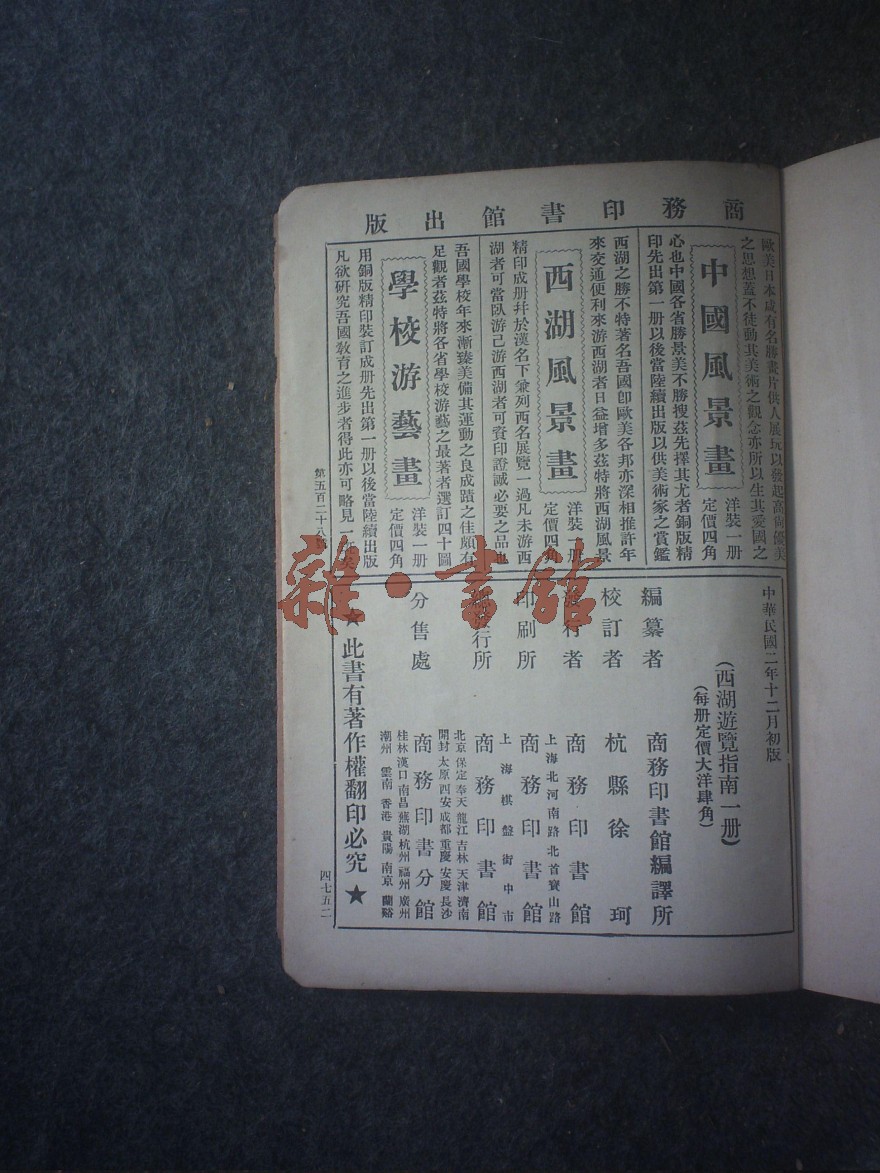 商務印書館出版
歐美日本咸有名勝畫片供人展玩以發起高尙優美
之思想蓋不徒動其美術之觀念亦所以生其愛國之
中國風景畫
洋裝一册
定價四角
心也中國各省勝景美不勝搜茲先擇其尤者銅版精
印先出第一册以後當陸續出版以供美術家之賞鑑
西湖之勝不特著名吾國卽歐美各邦亦深相推許年
來交通便利來游西湖者日益增多茲特將西湖風景
西湖風景畫
洋裝一册
定價四角
精印成册幷於漢名下兼列西名展覽一過凡未游西
湖者可當臥游已游西湖者可資印證誠必要之品也
吾國學校年來漸臻美備其運動之良成蹟之佳頗有
足觀者茲特將各省學校游藝之最著者選訂四十圖
學校游藝畫
洋裝一册
定價四角
用銅版精印裝訂成册先出第一册以後當陸續出版
凡欲硏究吾國敎育之進步者得此亦可略見一
第五百二十八
中華民國二年十二月初版
(西湖遊覽指南一册)
(每册定價大洋肆角)
編纂者 商務印書館編譯所
校訂者 杭縣徐珂
發行者 商務印書館
上海北河南路北首寶山路
印刷所 商務印書館
上海棋盤街中市
總發行所 商務印書館
北京保定奉天龍江吉林天津濟南
開封太原西安成都重慶安慶長沙
分售處 商務印書分館
桂林漢口南昌蕪湖杭州福州廣州
潮州雲南香港貴陽南京蘭谿
★此書有著作權翻印必究★
四七五二
雜·書館